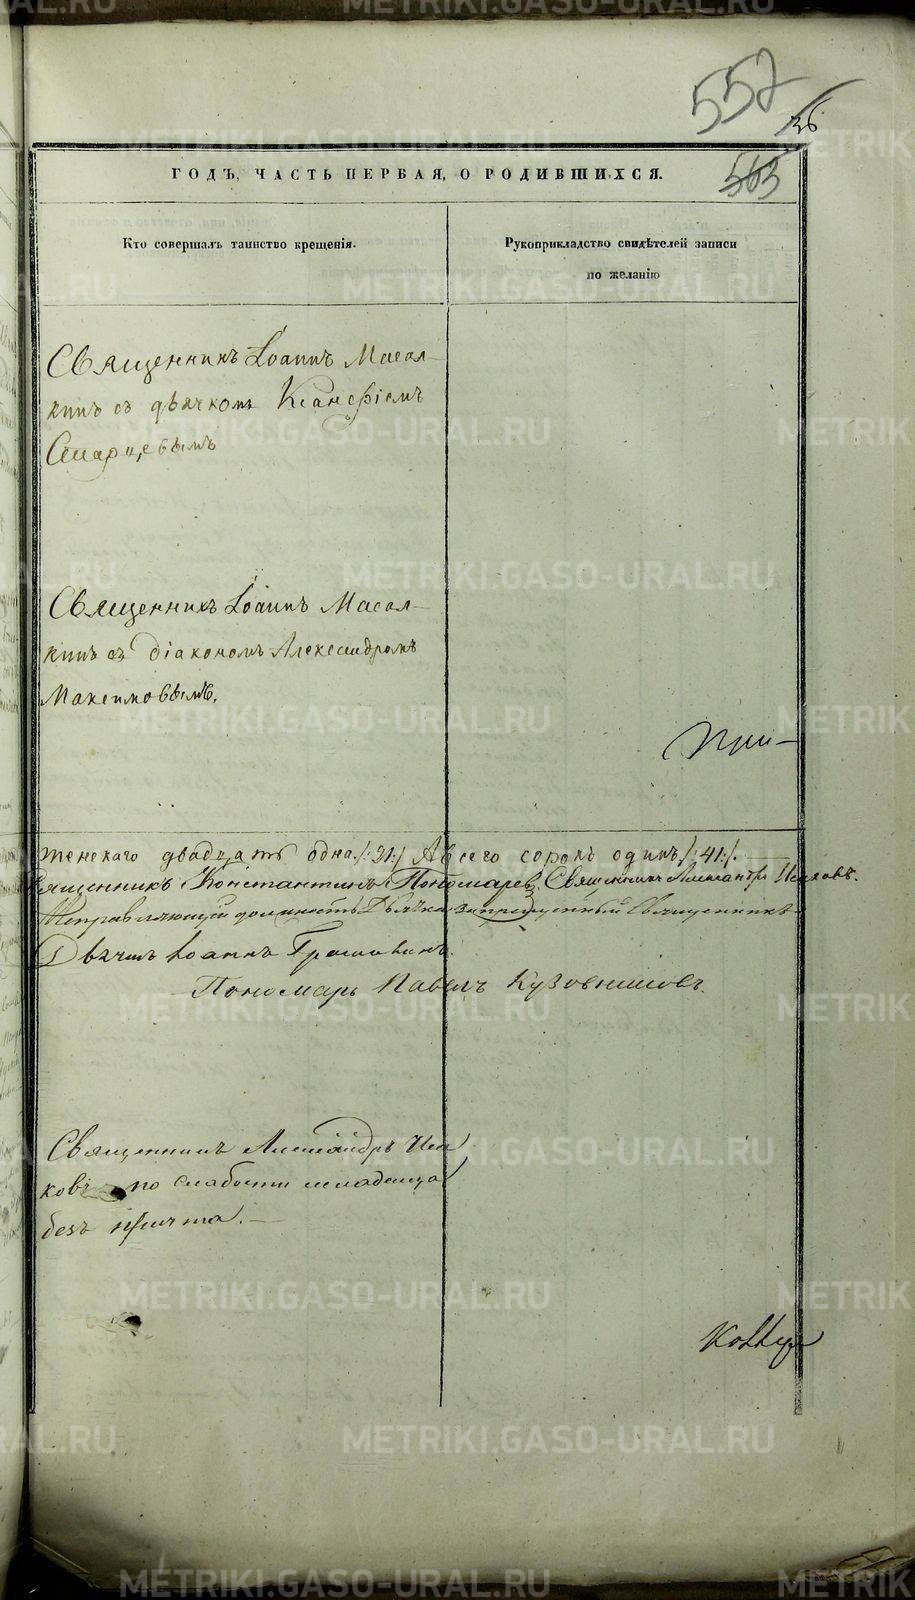 552
36
563
ГОДЪ, ЧАСТЬ ПЕРВАЯ, О РОДИВШИХСЯ.
Кто совершалъ таинство крещенія.
Рукоприкладство свидѣтелей записи
по желанію
Священникъ Іоаннъ Масал-
кинъ съ дьячкомъ Ксанѳіемъ
Старцевымъ
Священникъ Іоаннъ Масал-
кинъ съ діакономъ Александромъ
Максимовымъ,
При-
женскаго двадцать одна /:21:/ А всего сорокъ одинъ /:41:/.
Священникъ Константинъ Пономарев. Священникъ Александръ Исаковъ.
Исправляющій должность Дьячка запрещенный Священникъ
Дьячекъ Іоаннъ
Пономарь Павелъ Кузовниковъ.
Священникъ Александръ Иса
ковъ по слабости младенца
безъ причта.
METRIKI.GASO-URAL.RU